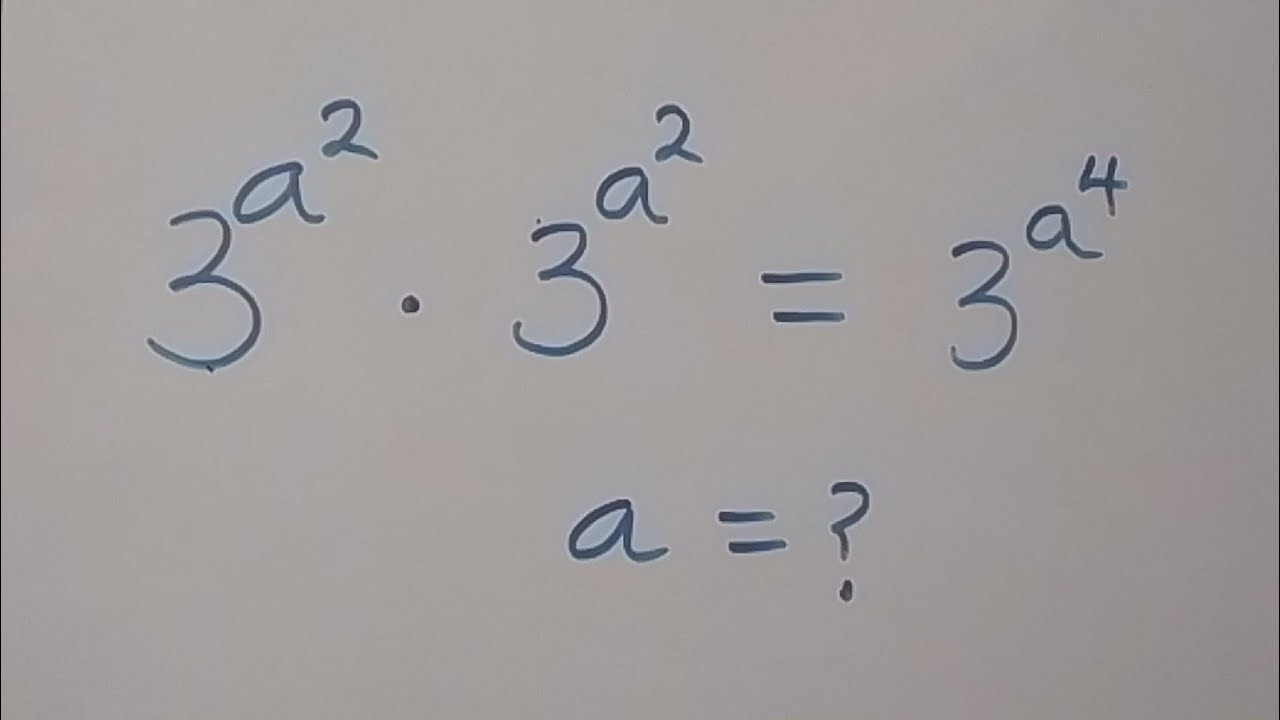 3^{a^2} · 3^{a^2} = 3^{a^4}
a = ?